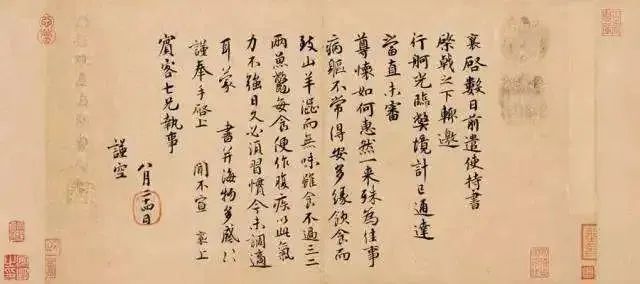 襄啓數日前遣使持書
棨戟之下輙邀
行舸光臨弊境計已通達
當直未審
尊懷如何惠然一来殊為佳事
病軀不常得安多緣飲食而
致山羊澀而無味雖食不過三二
兩魚鼈每食便作腹疾以此氣
力不強日久必須習慣今未調適
耳蒙 書并海物多感〻
謹奉手啓上 聞不宣 襄上
賓客七兄執事
八月廿四日
謹空